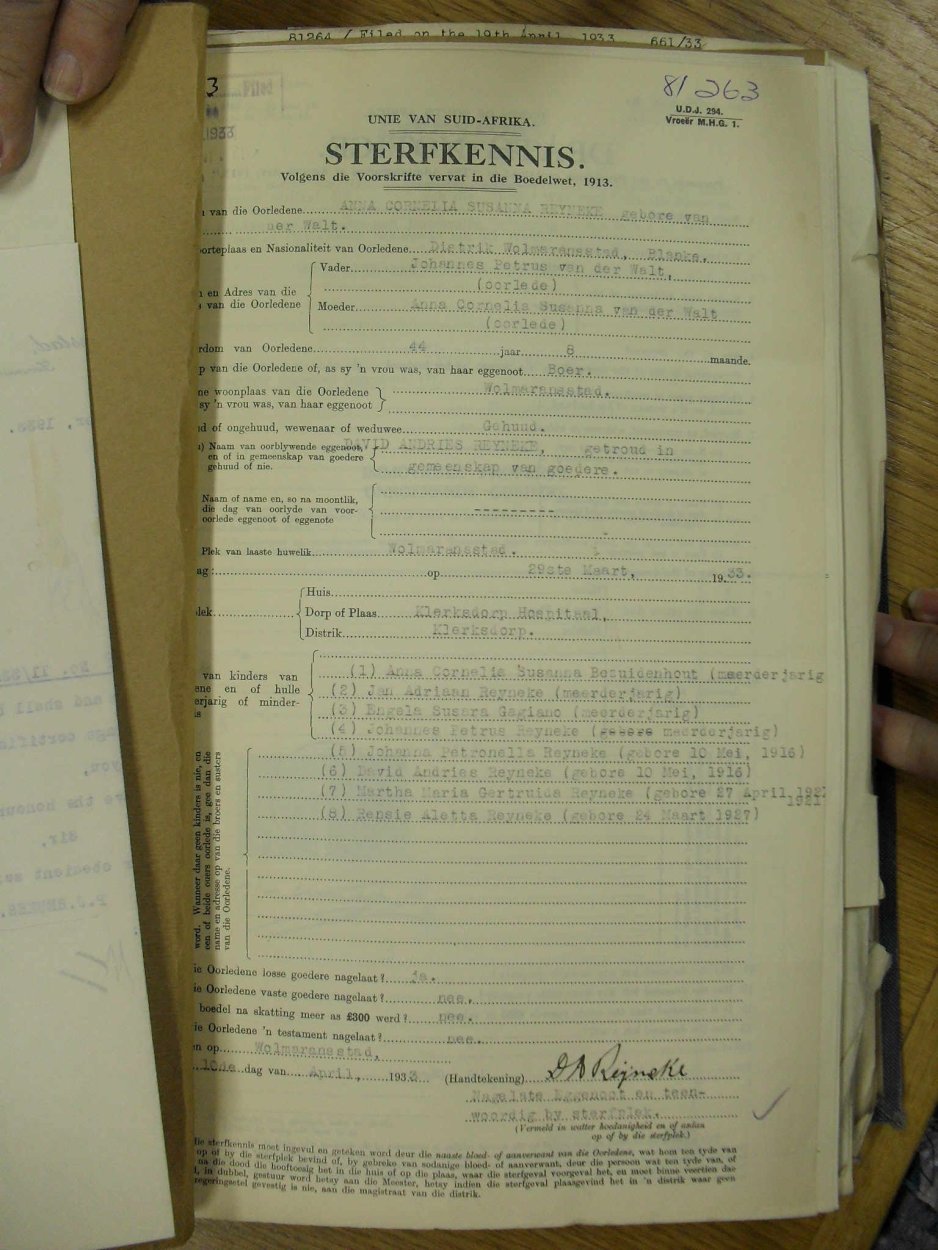 81264 / Filed on the 19th April, 1933 661/33
3
Filed
1933
81263
U.D.J. 294.
Vroeër M.H.G. 1.
UNIE VAN SUID-AFRIKA.
STERFKENNIS.
Volgens die Voorskrifte vervat in die Boedelwet, 1913.
van die Oorledene ANNA CORNELIA SUSANNA REYNEKE gebore van
der Walt.
oorteplaas en Nasionaliteit van Oorledene Distrik Wolmaransstad, Blanke,
Vader Johannes Petrus van der Walt,
(oorlede)
en Adres van die
van die Oorledene
Moeder Anna Cornelia Susanna van der Walt
(oorlede)
rdom van Oorledene 44 jaar 8 maande.
p van die Oorledene of, as sy 'n vrou was, van haar eggenoot Boer.
ne woonplaas van die Oorledene Wolmaransstad.
sy 'n vrou was, van haar eggenoot
d of ongehuud, wewenaar of weduwee Gehuud.
Naam van oorblywende eggenoot, DAVID ANDRIES REYNEKE, getroud in
en of in gemeenskap van goedere
gehuud of nie. gemeenskap van goedere.
Naam of name en, so na moontlik,
die dag van oorlyde van voor-
oorlede eggenoot of eggenote ---------
Plek van laaste huwelik Wolmaransstad.
ag: op 29ste Maart, 1933.
Huis
lek Dorp of Plaas Klerksdorp Hospitaal,
Distrik Klerksdorp.
van kinders van
ene en of hulle
erjarig of minder-
(1) Anna Cornelia Susanna Bezuidenhout (meerderjarig
(2) Jan Adriaan Reyneke (meerderjarig)
(3) Engela Susara Gagiano (meerderjarig)
(4) Johannes Petrus Reyneke (gebore meerderjarig)
(5) Johanna Petronella Reyneke (gebore 10 Mei, 1916)
(6) David Andries Reyneke (gebore 10 Mei, 1916)
(7) Martha Maria Gertruida Reyneke (gebore 27 April 192
1921
(8) Rensie Aletta Reyneke (gebore 24 Maart 1927)
word. Wanneer daar geen kinders is nie, en
een of beide ouers oorlede is, gee dan die
name en adresse op van die broers en susters
van die Oorledene.
ie Oorledene losse goedere nagelaat? ja.
ie Oorledene vaste goedere nagelaat? nee.
boedel na skatting meer as £300 werd? nee.
ie Oorledene 'n testament nagelaat? nee.
n op Wolmaransstad,
10de dag van April, 1933 (Handtekening) D A Reyneke
Nagelate Eggenoot en teen-
woordig by sterfplek.
(Vermeld in watter hoedanigheid en of anders
op of by die sterfplek.)
die sterfkennis moet ingevul en geteken word deur die naaste bloed- of aanverwant van die Oorledene, wat hom ten tyde van
op of by die sterfplek bevind of, by gebreke van sodanige bloed- of aanverwant, deur die persoon wat ten tyde van, of
na die dood die hooftoesig het in die huis of op die plaas, waar die sterfgeval voorgeval het, en moet binne veertien dae
in dubbel, gestuur word hetsy aan die Meester, hetsy indien die sterfgeval plaasgevind het in 'n distrik waar geen
regeringsetel gevestig is nie, aan die magistraat van die distrik.